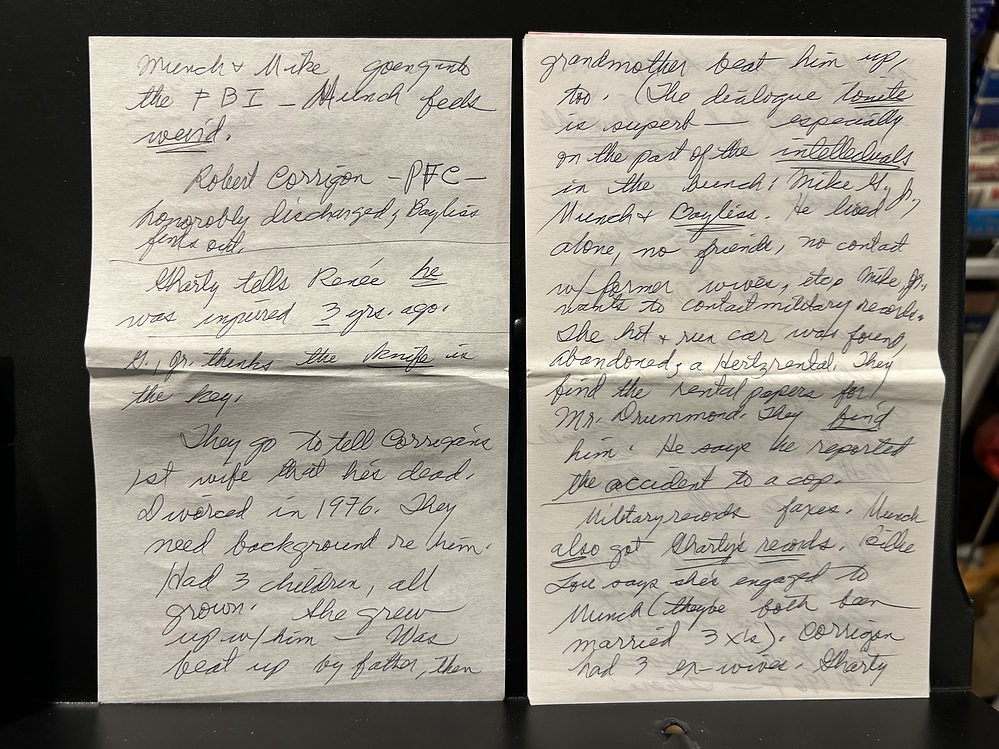 Munch & Mike going into
the FBI — Munch feels
weird.
Robert Corrigan — PFC —
honorably discharged, Bayliss
finds out.
Gharty tells Renée he
was injured 3 yrs. ago.
G., Jr. thinks the knife is
the key.
They go to tell Corrigan's
1st wife that he's dead.
Divorced in 1976. They
need background re him.
Had 3 children, all
grown. She grew
up w/ him — Was
beat up by father, then
grandmother beat him up,
too. (The dialogue tonite
is superb — especially
on the part of the intellectuals
in the bunch: Mike G., Jr.,
Munch & Bayliss. He lived
alone, no friends, no contact
w/ former wives, etc. Mike, Jr.
wants to contact military records.
The hit & run car was found,
abandoned, a Hertz rental. They
find the rental papers for
Mr. Drummond. They find
him. He says he reported
the accident to a cop.
Military records faxes. Munch
also got Gharty's records. Billie
Lou says she's engaged to
Munch (they've both been
married 3 x's). Corrigan
had 3 ex-wives. Gharty